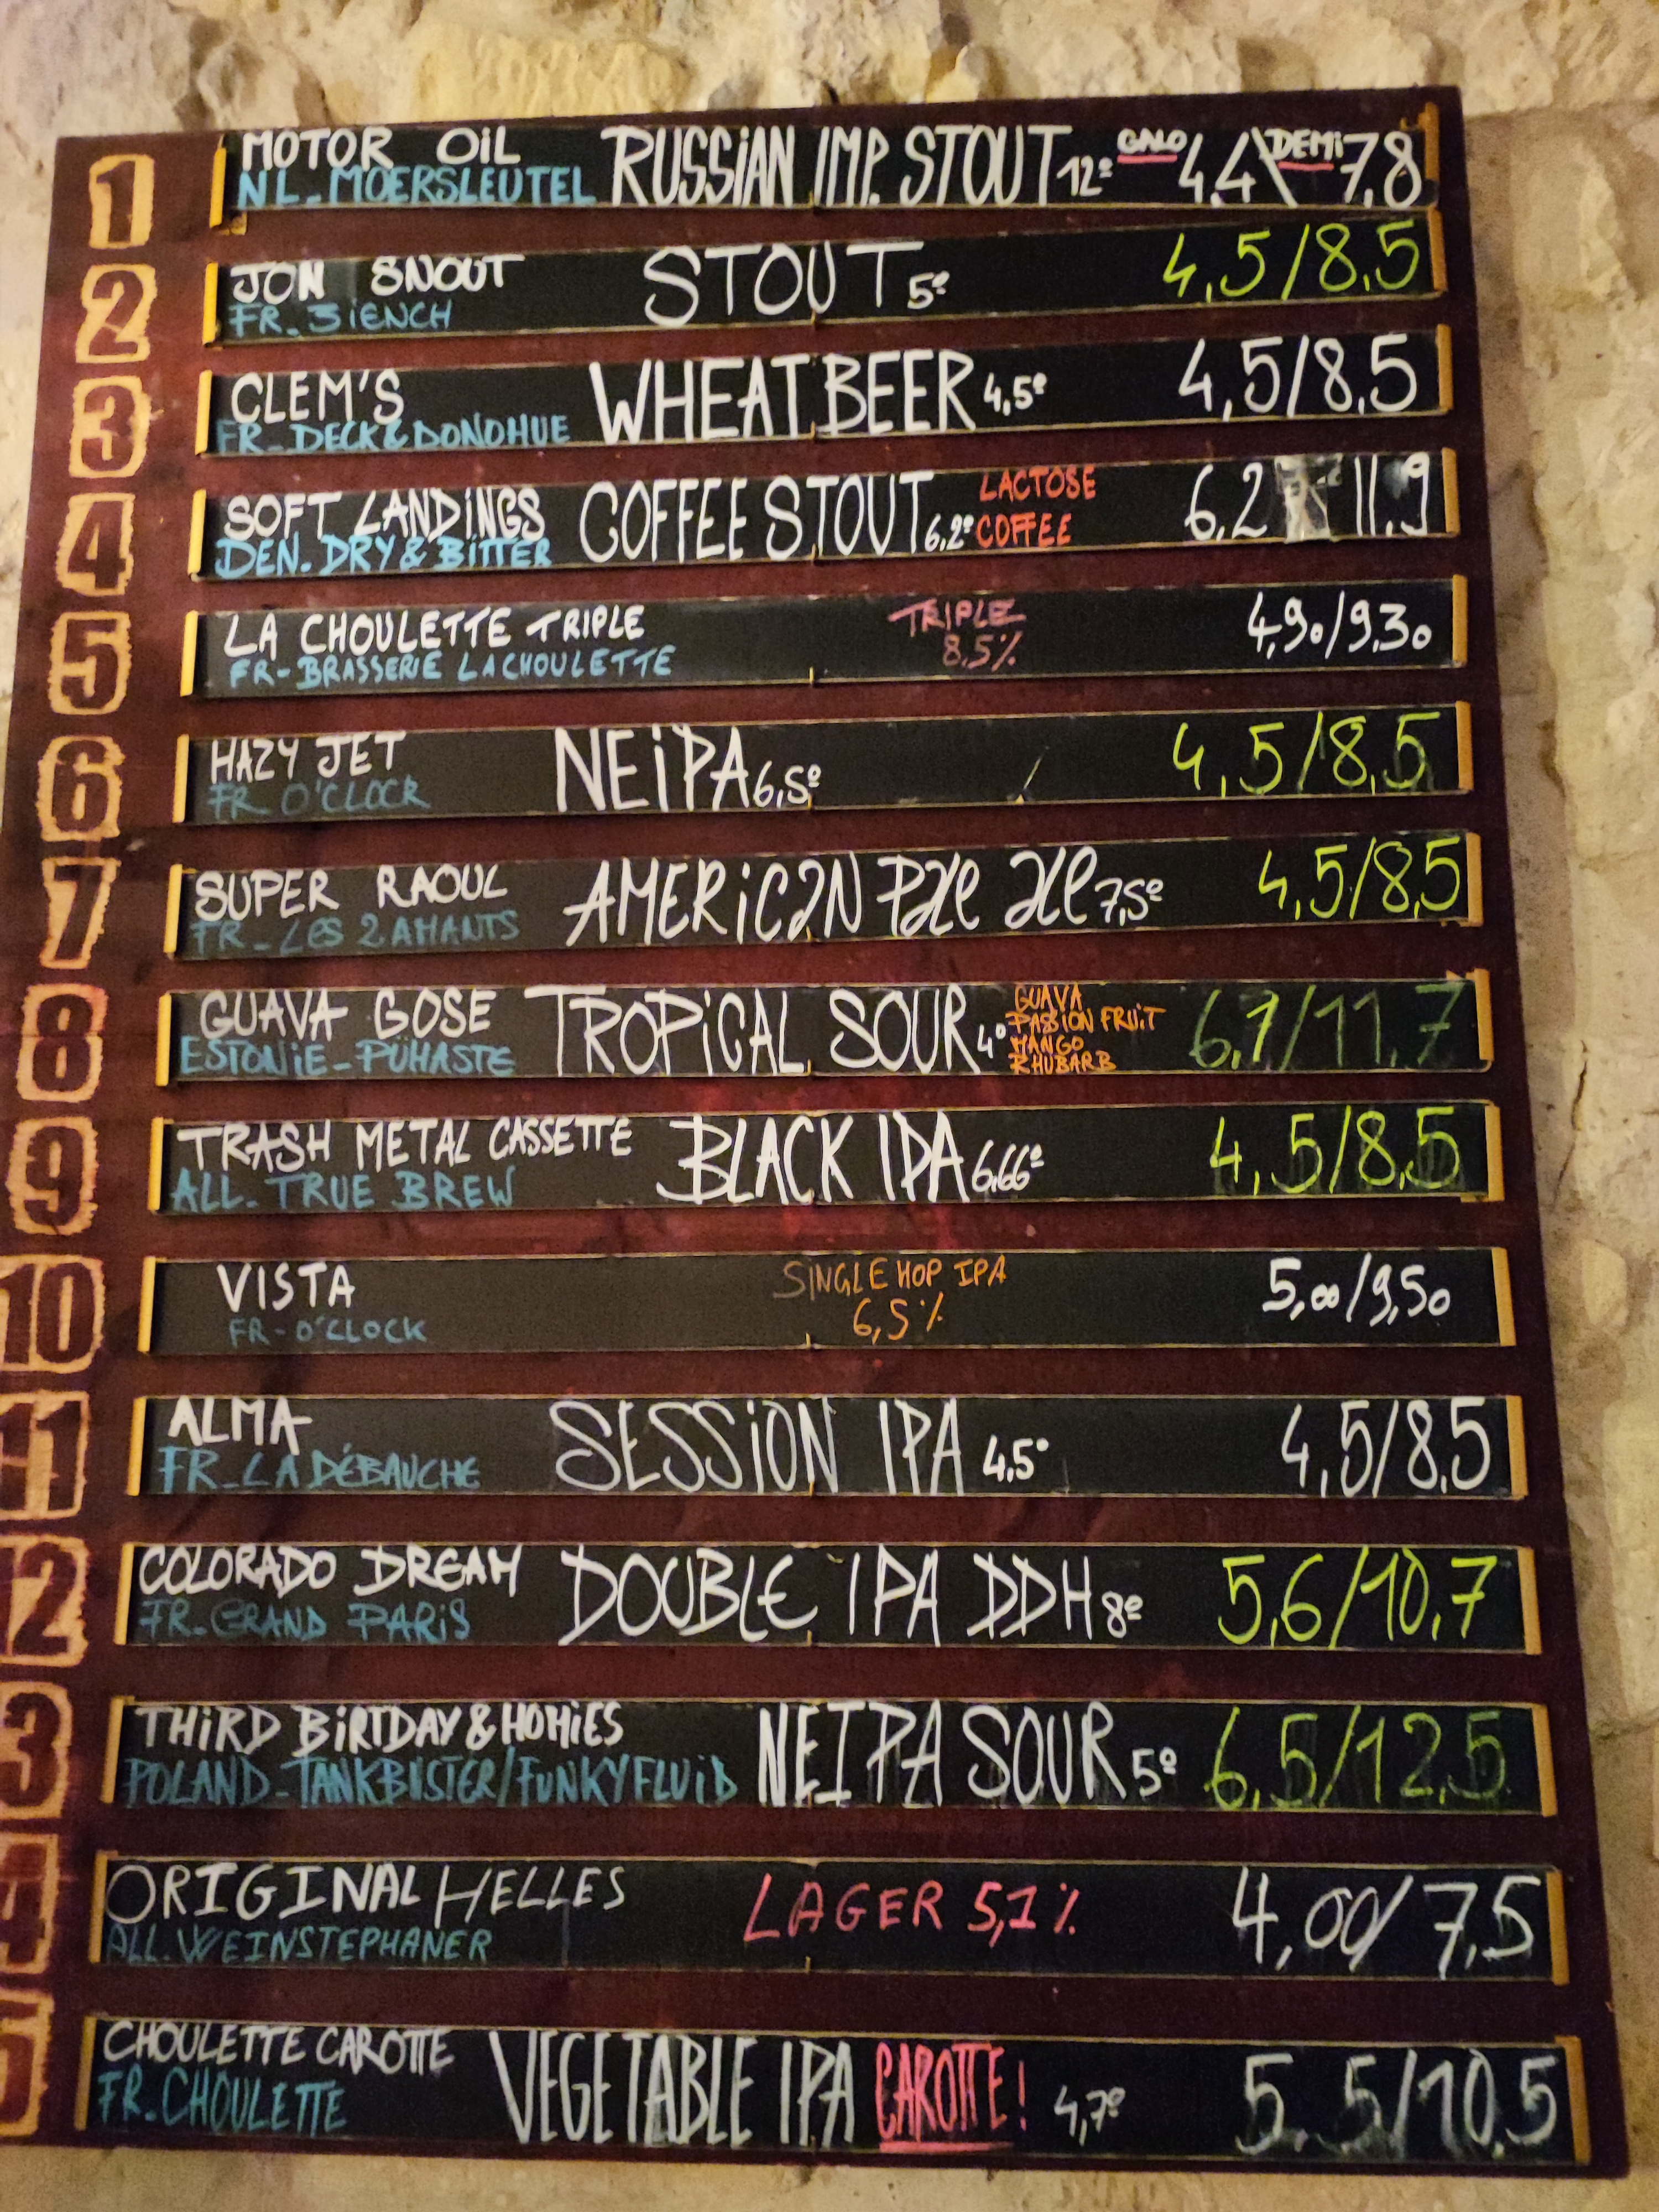 1 MOTOR OIL RUSSIAN IMP. STOUT 12° GALO 4,4\DEMI 7,8
NL_MOERSLEUTEL
2 JON SNOUT STOUT 5° 4,5/8,5
FR_3iENCH
3 CLEM'S WHEAT BEER 4,5° 4,5/8,5
FR_DECK&DONOHUE
4 SOFT LANDINGS COFFEE STOUT 6,2° LACTOSE 6,2 11.9
DEN. DRY & BITTER COFFEE
5 LA CHOULETTE TRIPLE TRIPLE 4,90/9,30
FR-BRASSERIE LA CHOULETTE 8,5%
6 HAZY JET NEiPA 6,5° 4,5/8,5
FR O'CLOCK
7 SUPER RAOUL AMERiCAN Pale ale 7,5° 4,5/8,5
FR_LES 2 AMANTS
8 GUAVA GOSE TROPiCAL SOUR 4° GUAVA 6,7/11,7
PASSION FRUiT
ESTONiE-PÜHASTE MANGO
RHUBARB
9 TRASH METAL CASSETTE BLACK IPA 6,66° 4,5/8,5
ALL. TRUE BREW
10 VISTA SINGLE HOP IPA 5,00/9,50
FR-O'CLOCK 6,5%
11 ALMA SESSiON IPA 4,5° 4,5/8,5
FR_LA DÉBAUCHE
12 COLORADO DREAM DOUBLE IPA DDH 8° 5,6/10,7
FR-GRAND PARiS
3 THiRD BiRTDAY & HOMiES NEIPA SOUR 5° 6,5/12,5
POLAND-TANKBUSTER/FUNKYFLUiD
4 ORIGINAL HELLES LAGER 5,1% 4,00/7,5
ALL.WEINSTEPHANER
5 CHOULETTE CAROTTE VEGETABLE IPA CAROTTE! 4,7° 5.5/10,5
FR.CHOULETTE